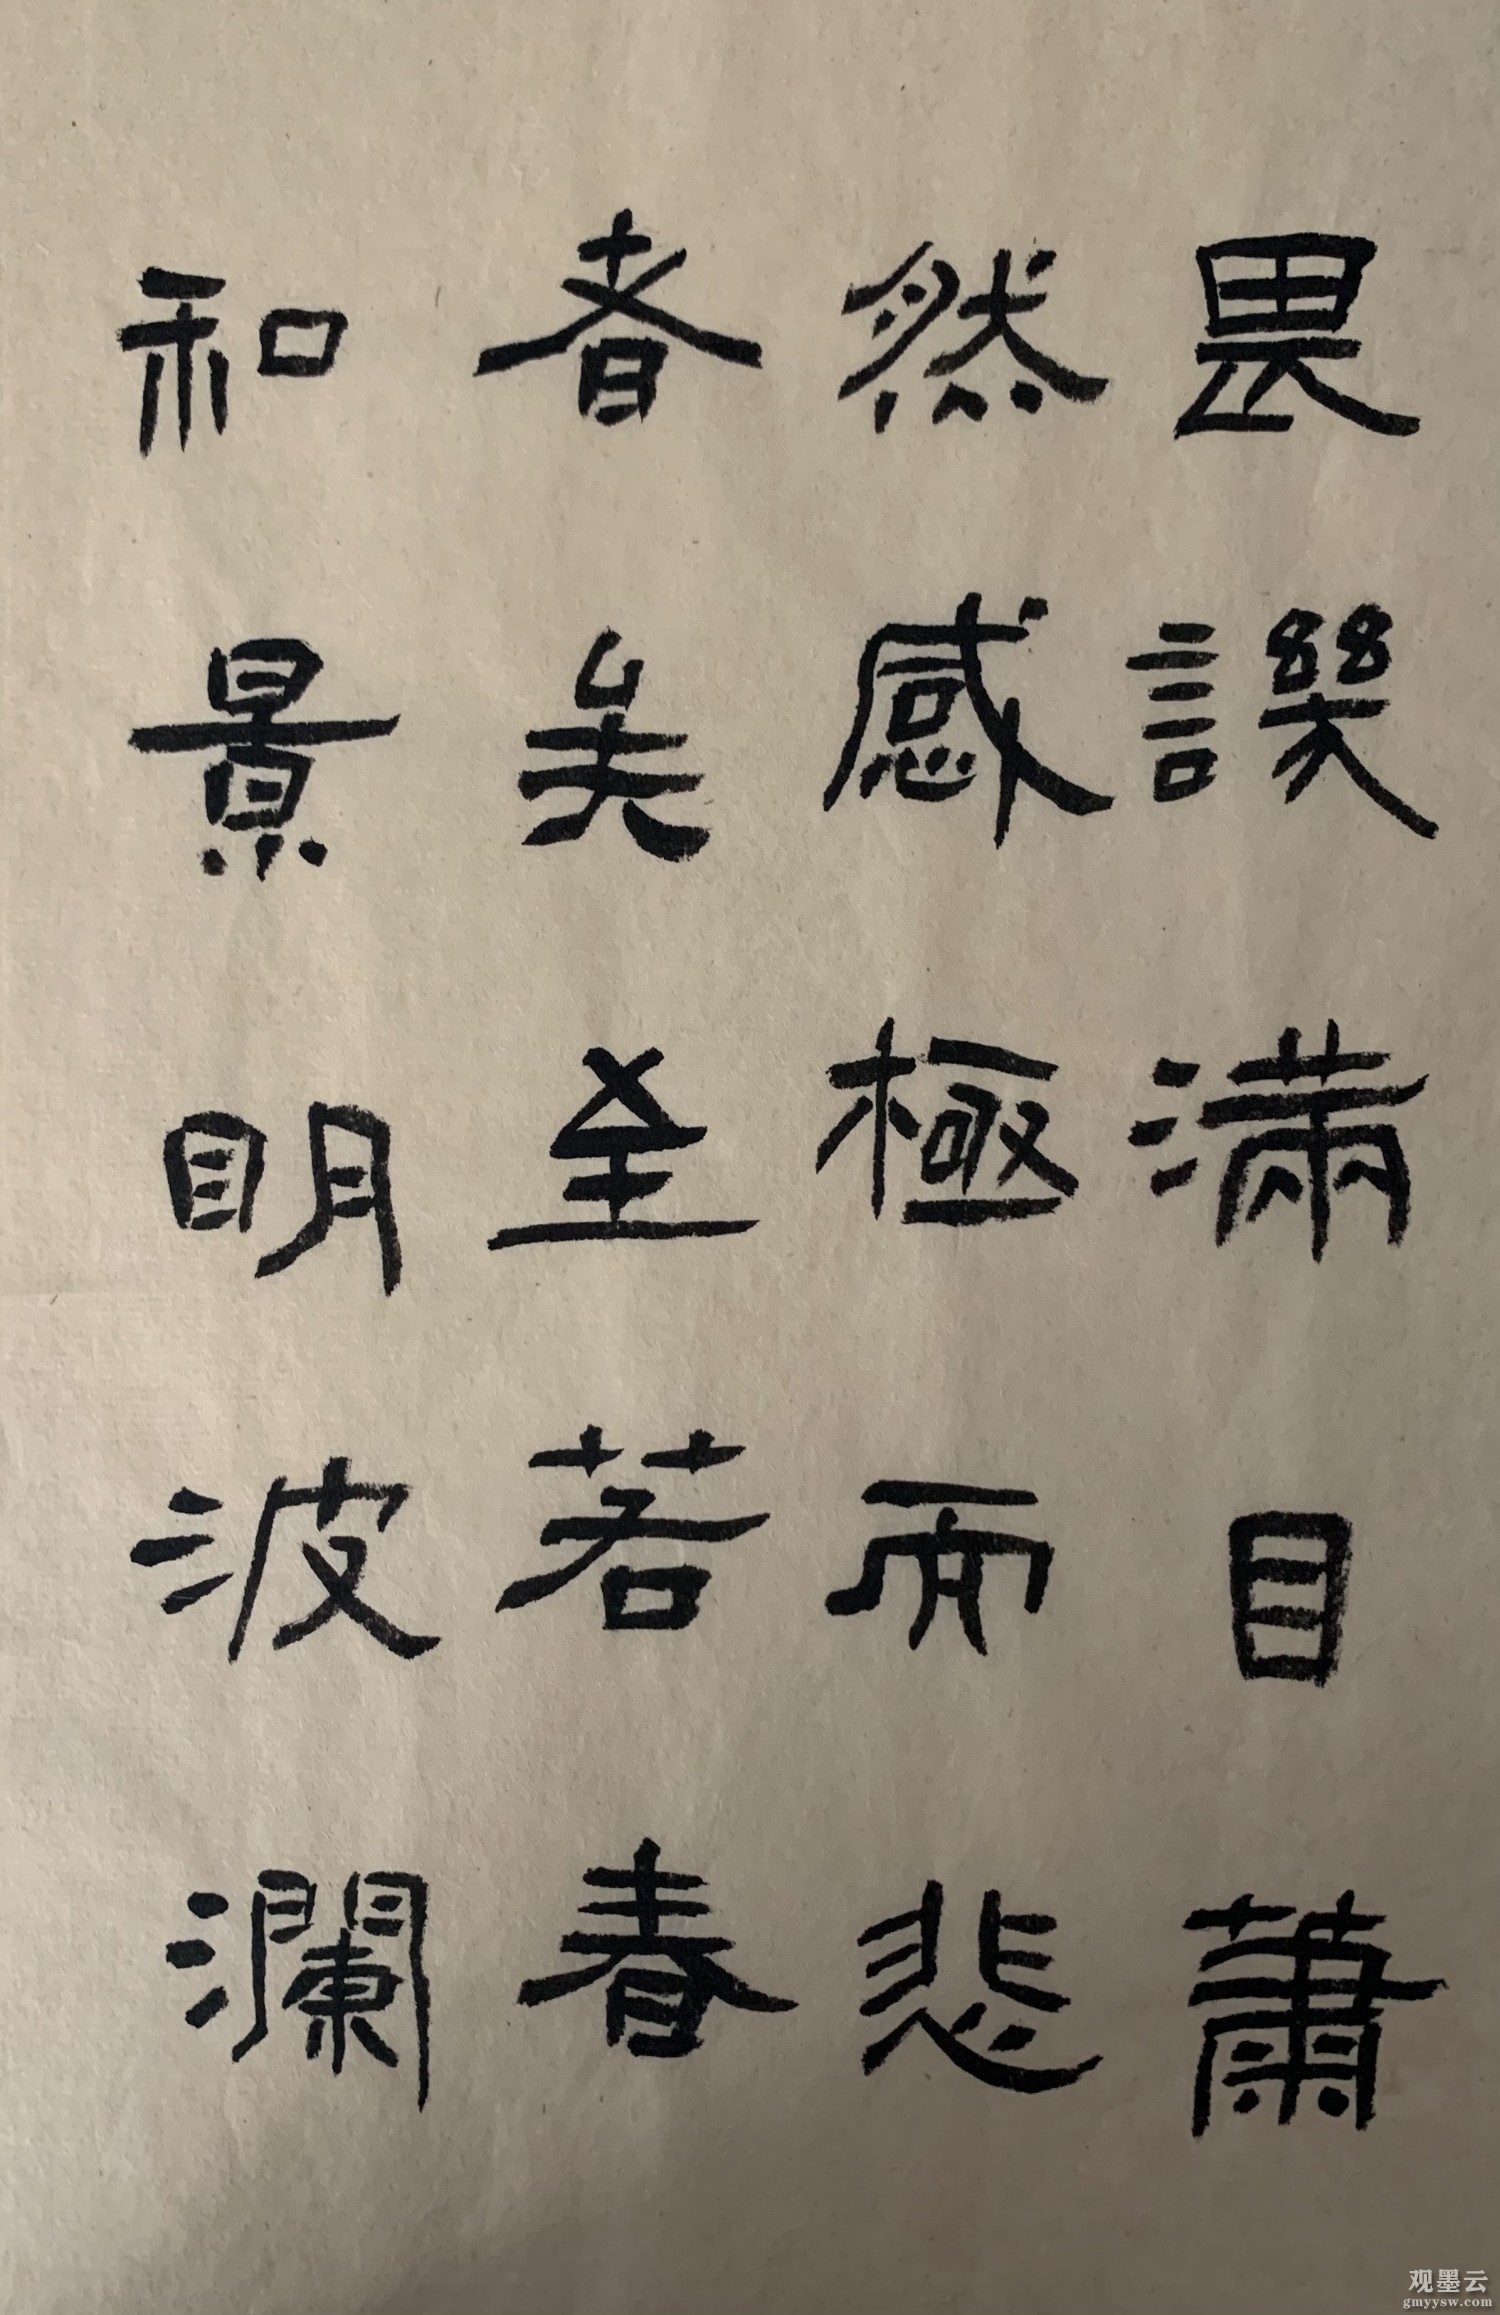 畏譏滿目蕭
然感極而悲
者矣至若春
和景明波瀾
观墨云
gmyysw.com